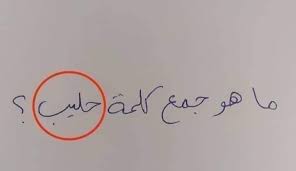 ما هو جمع كلمة حليب ؟